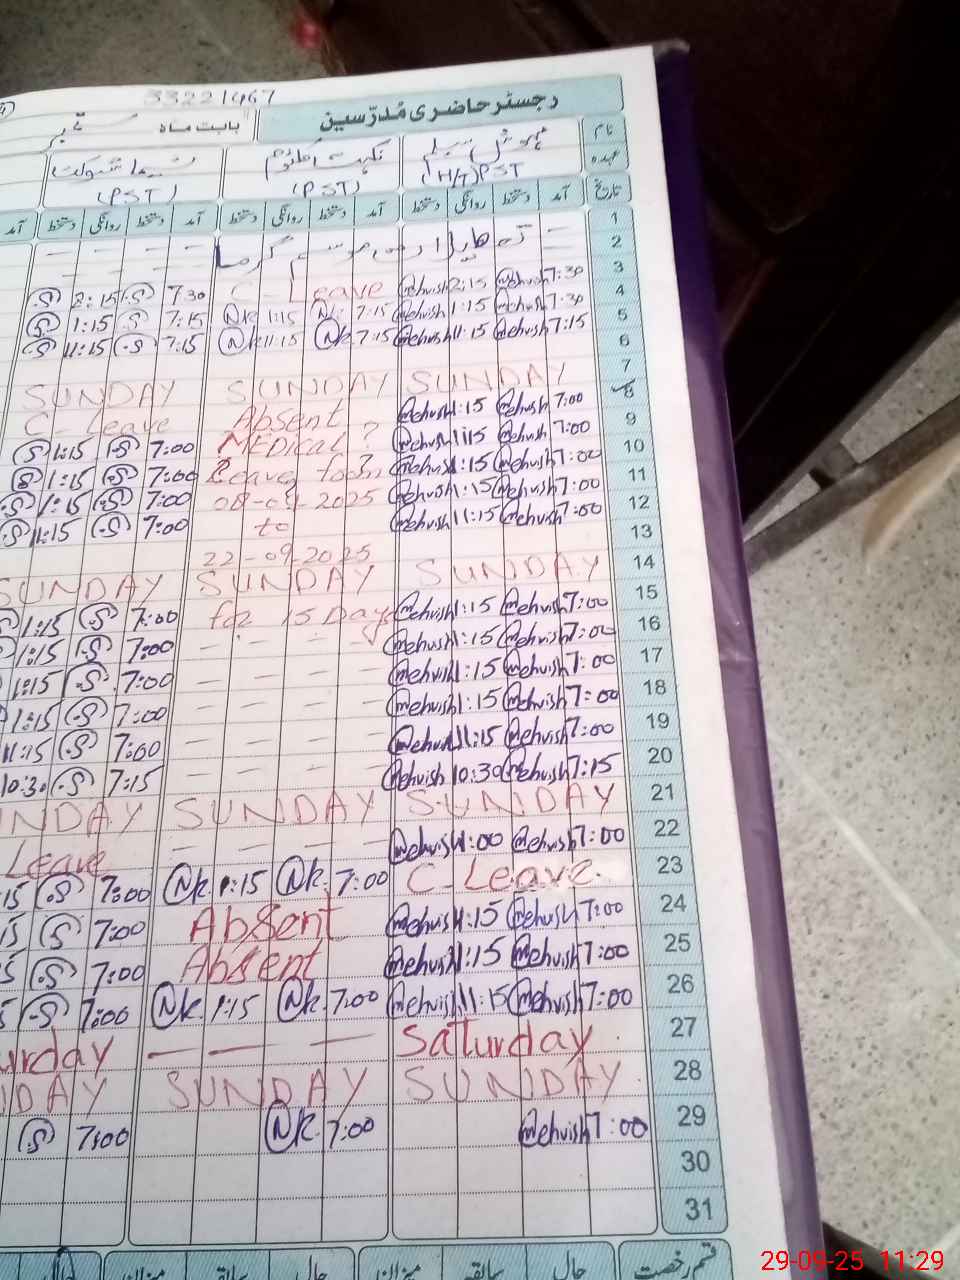 33221467
رجسٹر حاضری مُدرّسین بابت ماہ ستمبر
نام مہوش نگہت
عہدہ (H/T) PST (PST) (PST)
تاریخ آمد دستخط روانگی دستخط آمد دستخط روانگی دستخط آمد دستخط روانگی دستخط آمد
1
2
3
4 7:30 Mehvish 2:15 Mehvish C-Leave 7:30 S 2:15 S
5 7:30 Mehvish 1:15 Mehvish 7:15 Nk 1:15 Nk 7:15 S 1:15 S
6 7:15 Mehvish 11:15 Mehvish 7:15 Nk 11:15 Nk 7:15 S 11:15 S
7 SUNDAY SUNDAY SUNDAY
8 7:00 Mehvish 1:15 Mehvish Absent C-Leave
9 7:00 Mehvish 1:15 Mehvish Medical ? 7:00 S 1:15 S
10 7:00 Mehvish 1:15 Mehvish Leave 7:00 S 1:15 S
11 7:00 Mehvish 1:15 Mehvish 08-09-2025 7:00 S 1:15 S
12 7:00 Mehvish 11:15 Mehvish to 7:00 S 11:15 S
13 22-09-2025
14 SUNDAY SUNDAY SUNDAY
15 7:00 Mehvish 1:15 Mehvish for 15 Days 7:00 S 1:15 S
16 7:00 Mehvish 1:15 Mehvish 7:00 S 1:15
17 7:00 Mehvish 1:15 Mehvish 7:00 S 1:15
18 7:00 Mehvish 1:15 Mehvish 7:00 S 1:15
19 7:00 Mehvish 11:15 Mehvish 7:00 S 11:15
20 7:15 Mehvish 10:30 Mehvish 7:15 S 10:30
21 SUNDAY SUNDAY NDAY
22 7:00 Mehvish 1:00 Mehvish Leave
23 C-Leave 7:00 Nk 1:15 Nk 7:00 S 15
24 7:00 Mehvish 1:15 Mehvish Absent 7:00 S 15
25 7:00 Mehvish 1:15 Mehvish Absent 7:00 S 5
26 7:00 Mehvish 11:15 Mehvish 7:00 Nk 1:15 Nk 7:00 S 5
27 Saturday urday
28 SUNDAY SUNDAY DAY
29 7:00 Mehvish 7:00 Nk 7:00 S
30
31
قسم رخصت حال سابقہ میزان حال سابقہ میزان حال
29-09-25 11:29